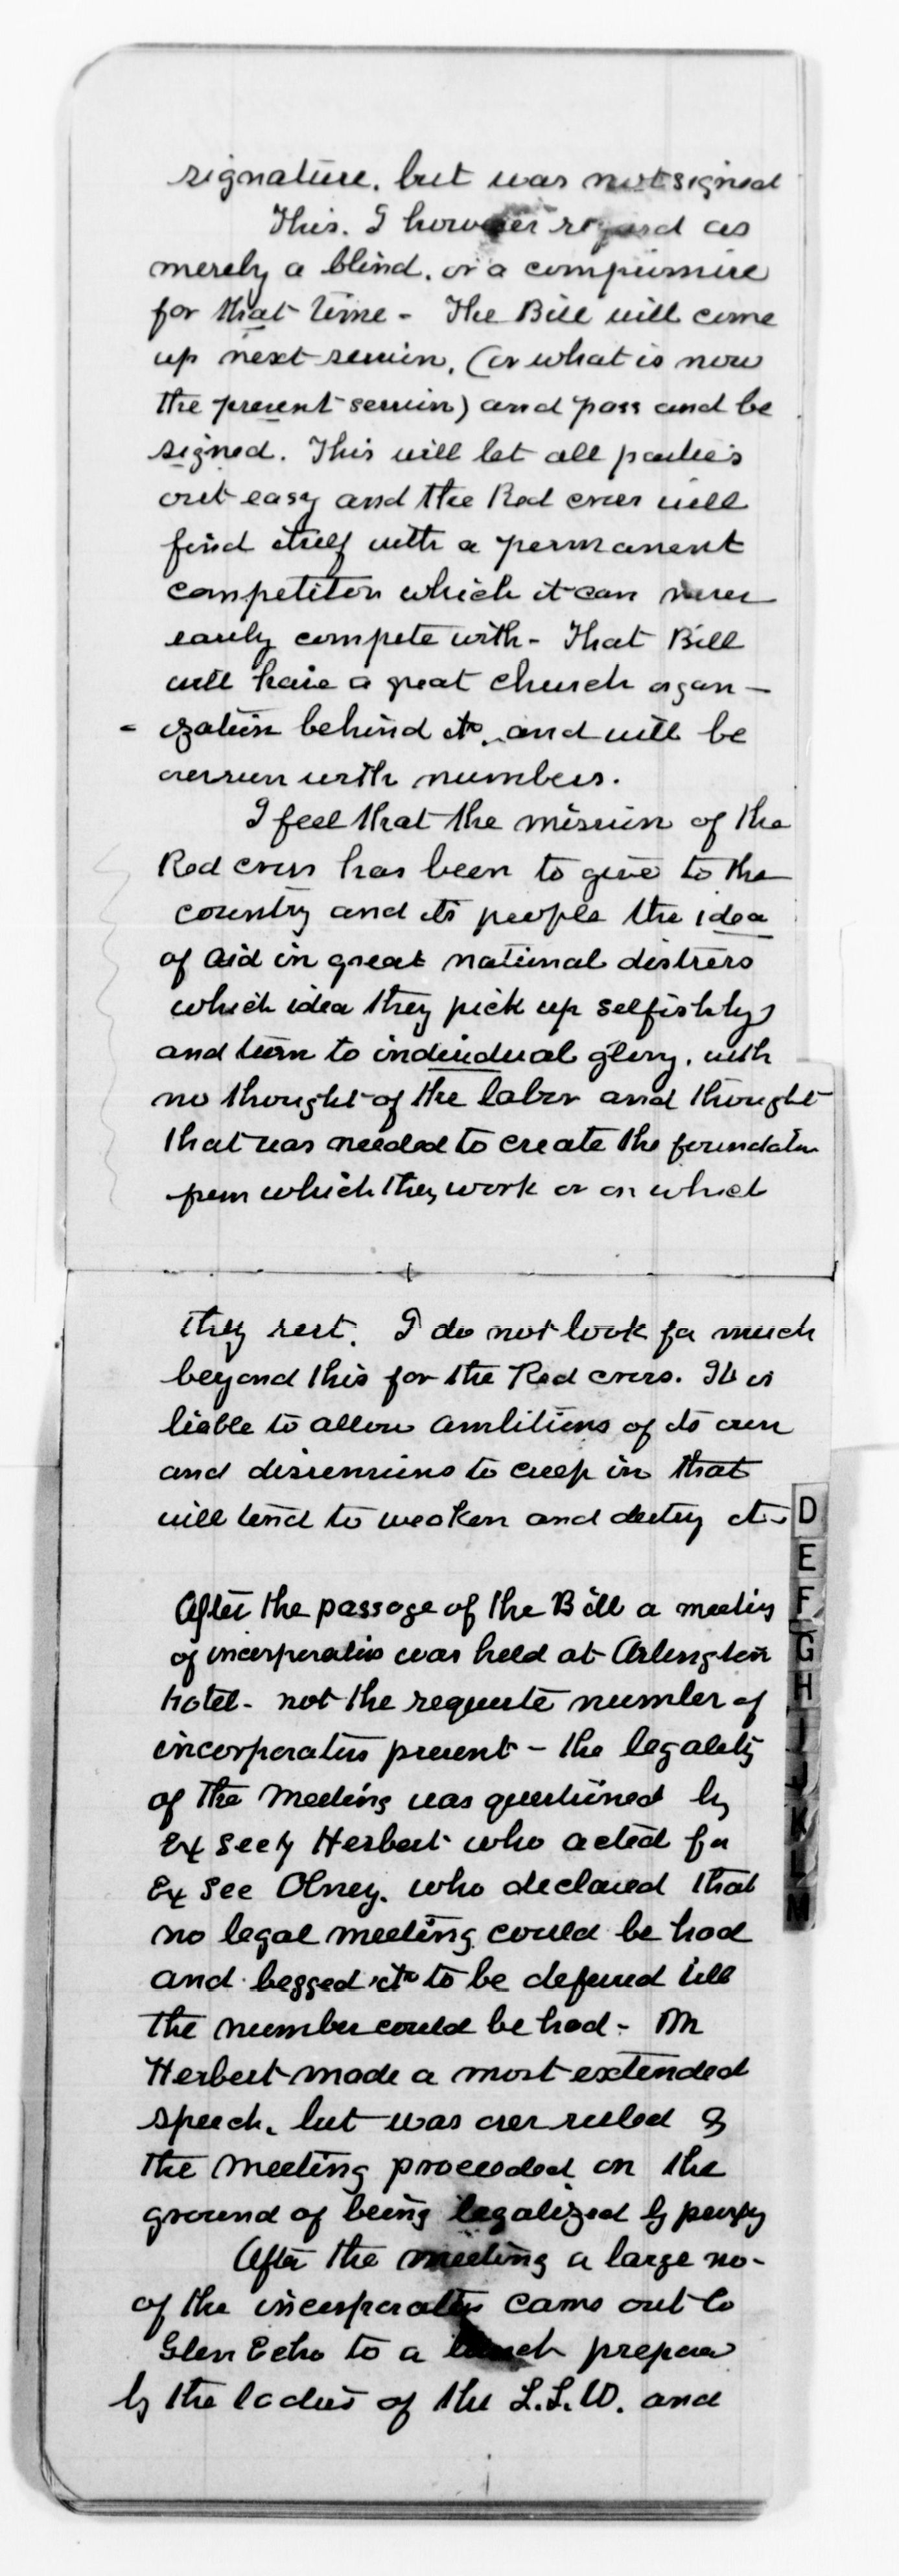 signature, but was not signed
This. I however regard as
merely a blind, or a compromise
for that time - The Bill will come
up next session, (or what is now
the present session) and pass and be
signed. This will let all parties
out easy and the Red cross will
find itself with a permanent
competitor which it can never
easily compete with - That Bill
will have a great church organ -
- ization behind it, and will be
overrun with numbers.
I feel that the mission of the
Red cross has been to give to the
country and its people the idea
of aid in great national distress
which idea they pick up selfishly
and turn to individual glory, with
no thought of the labor and thought
that was needed to create the foundation
from which they work or on which
they rest. I do not look for much
beyond this for the Red cross. It is
liable to allow ambitions of its own
and dissensions to creep in that
will tend to weaken and destroy it -
After the passage of the Bill a meeting
of incorporators was held at Arlington
hotel - not the requisite number of
incorporators present - the legality
of the meeting was questioned by
Ex Secty Herbert who acted for
Ex Sec Olney, who declared that
no legal meeting could be had
and begged it to be deferred till
the number could be had - Mr
Herbert made a most extended
speech, but was over ruled &
the meeting proceeded on the
ground of being legalized by proxy
After the meeting a large no-
of the incorporators came out to
Glen Echo to a lunch prepared
by the ladies of the L.L.W. and
D
E
F
G
H
I
J
K
L
M